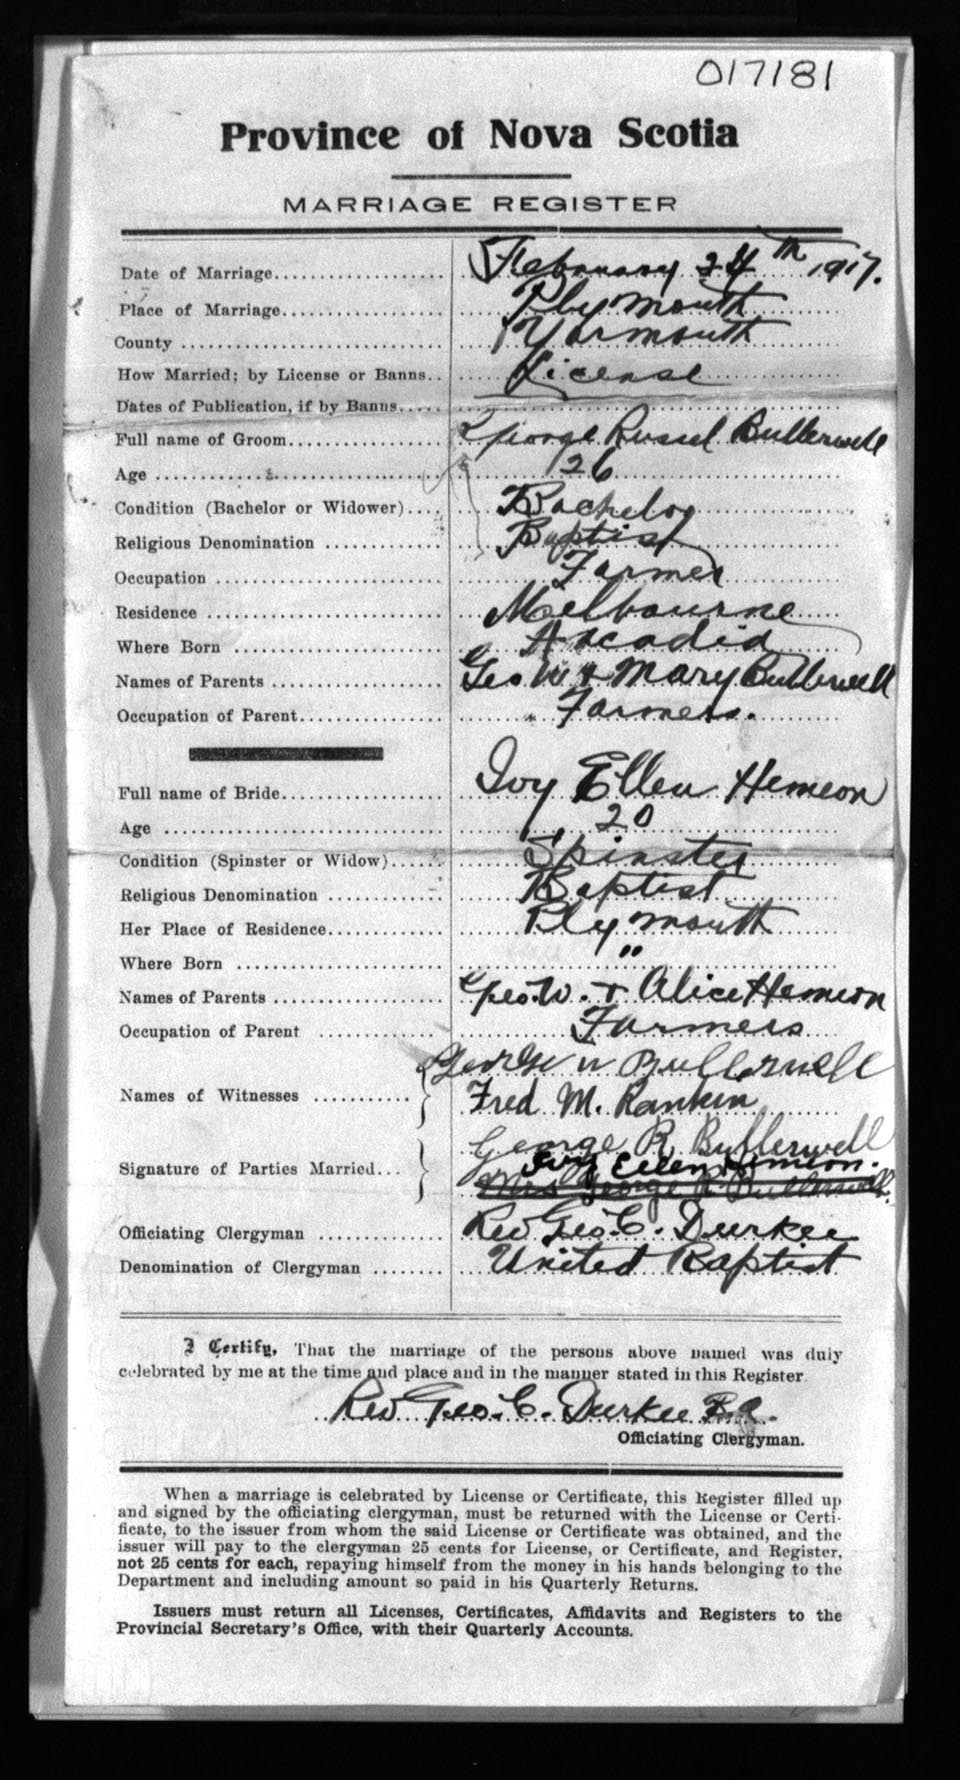 017181
Province of Nova Scotia
MARRIAGE REGISTER
Date of Marriage.................... February 24th 1917.
Place of Marriage................... Plymouth
County ............................. Yarmouth
How Married; by License or Banns.. License
Dates of Publication, if by Banns.....
Full name of Groom.................. George Russel Butlerwell
Age ................................ 26
Condition (Bachelor or Widower).... Bachelor
Religious Denomination ............. Baptist
Occupation ......................... Farmer
Residence .......................... Melbourne
Where Born ......................... Arcadia
Names of Parents ................... Geo W + Mary Butlerwell
Occupation of Parent................ Farmers.
Full name of Bride.................. Ivy Ellen Hemeon
Age ................................ 20
Condition (Spinster or Widow)...... Spinster
Religious Denomination ............. Baptist
Her Place of Residence.............. Plymouth
Where Born ......................... "
Names of Parents ................... Geo. W. + Alice Hemeon
Occupation of Parent ............... Farmers
George W Butlerwell
Names of Witnesses ........... Fred M. Rankin
George R Butlerwell
Signature of Parties Married... Ivy Ellen Hemeon.
Mrs George R Butlerwell.
Officiating Clergyman .............. Rev Geo. C. Durkee
Denomination of Clergyman ........ United Baptist
I Certify, That the marriage of the persons above named was duly
celebrated by me at the time and place and in the manner stated in this Register.
Rev Geo. C. Durkee B.A.
Officiating Clergyman.
When a marriage is celebrated by License or Certificate, this Register filled up
and signed by the officiating clergyman, must be returned with the License or Certi-
ficate, to the issuer from whom the said License or Certificate was obtained, and the
issuer will pay to the clergyman 25 cents for License, or Certificate, and Register,
not 25 cents for each, repaying himself from the money in his hands belonging to the
Department and including amount so paid in his Quarterly Returns.
Issuers must return all Licenses, Certificates, Affidavits and Registers to the
Provincial Secretary's Office, with their Quarterly Accounts.